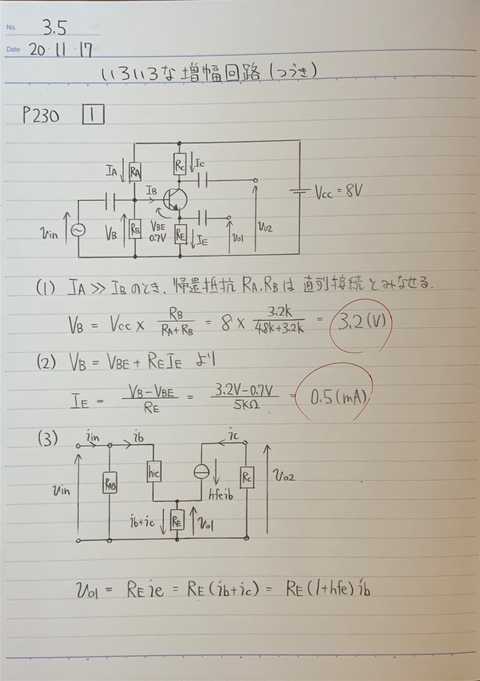 No. 3.5
Date 20・11・17
いろいろな増幅回路(つづき)
P230 1
IA RA RC IC
IB
VCC = 8V
vin VB RB VBE 0.7V RE IE vo1 vo2
(1) IA ≫ IBのとき、帰還抵抗 RA.RBは直列接続とみなせる.
VB = VCC × RB/(RA+RB) = 8 × 3.2k/(4.8k+3.2k) = 3.2(V)
(2) VB = VBE + REIE より
IE = (VB-VBE)/RE = (3.2V-0.7V)/5kΩ = 0.5(mA)
(3) iin ib ic
vin RAB hie hfeib RC vo2
ib+ic RE vo1
vo1 = RE ie = RE(ib+ic) = RE(1+hfe)ib